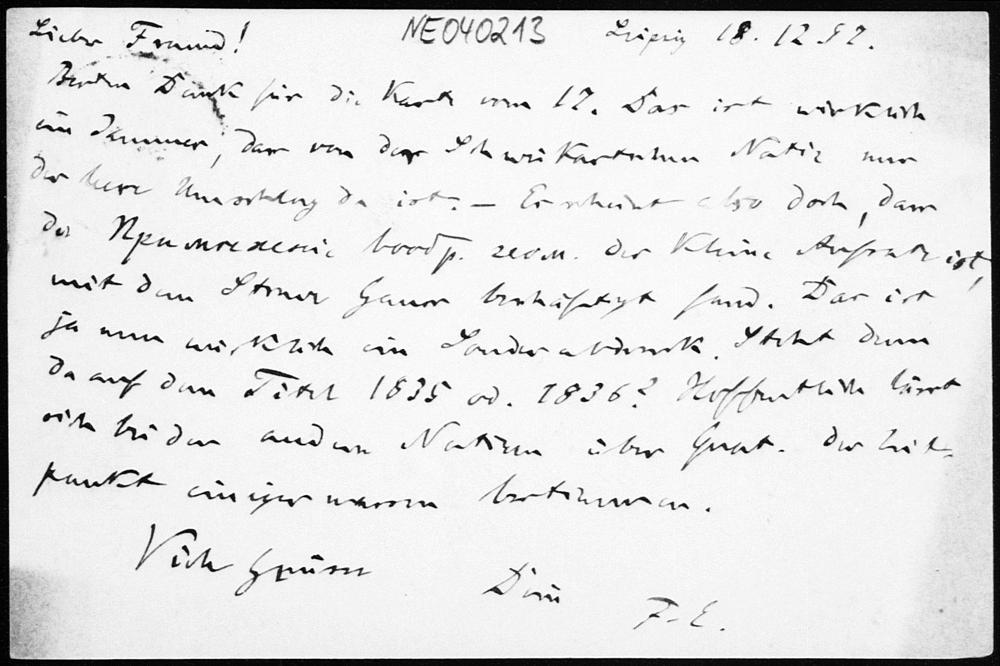 Lieber Freund! NE040213 Leipzig 18.12.97.
Besten Dank für die Karte vom 17. Das ist wirklich
ein Jammer, dass von der Schweikartschen Notiz nur
der leere Umschlag da ist. – Es scheint also doch, dass
die Примѣненіе вообр. геом. der kleine Aufsatz ist,
mit dem Struve Gauss beschäftigt fand. Das ist
ja nun wirklich ein Sonderabdruck. Steht denn
da auf dem Titel 1835 od. 1836? Hoffentlich lässt
sich bei den andern Notizen über Geom. der Zeit-
punkt einigermassen bestimmen.
Viele Grüsse
Dein
F. E.